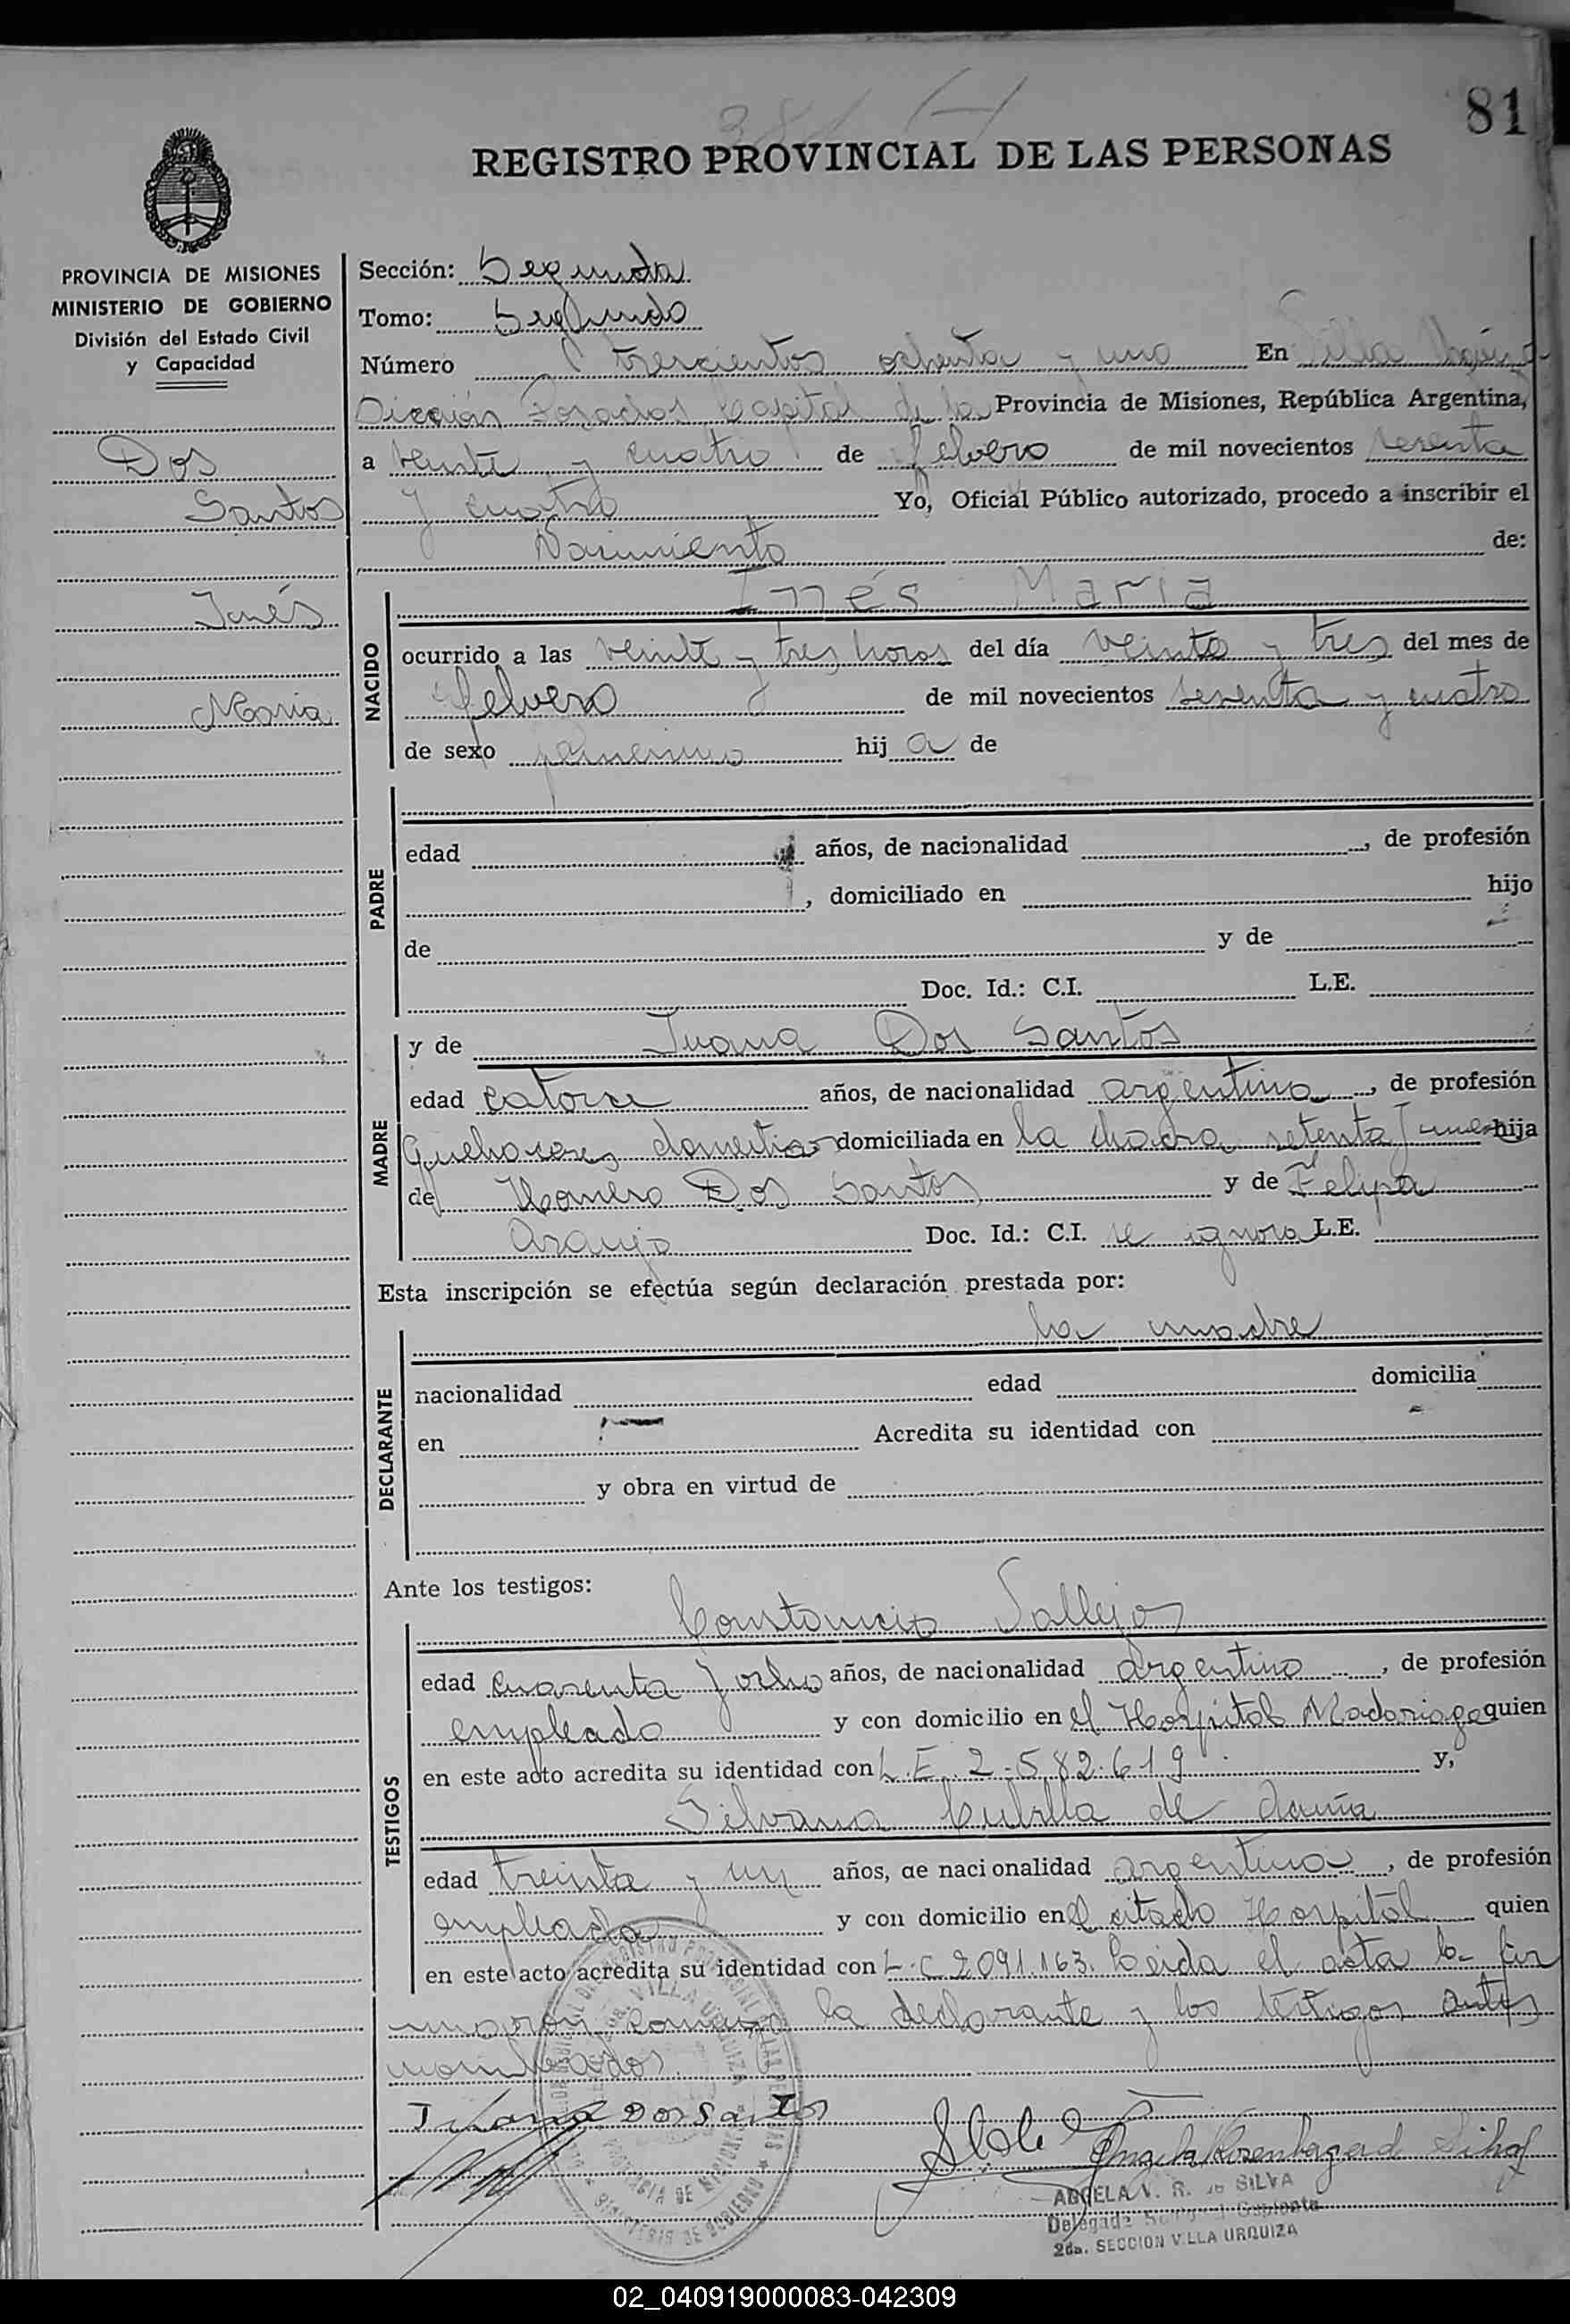 81
381
REGISTRO PROVINCIAL DE LAS PERSONAS
PROVINCIA DE MISIONES
MINISTERIO DE GOBIERNO
División del Estado Civil
y Capacidad
Dos
Santos
Inés
Maria
Sección: Segunda
Tomo: Segundo
Número trescientos ochenta y uno En Villa Urquiza
Posadas Capital de la Provincia de Misiones, República Argentina,
a veinte y cuatro de febrero de mil novecientos sesenta
y cuatro Yo, Oficial Público autorizado, procedo a inscribir el
Nacimiento de:
NACIDO
Inés Maria
ocurrido a las veinte y tres horas del día veinte y tres del mes de
febrero de mil novecientos sesenta y cuatro
de sexo femenino hij a de
PADRE
edad años, de nacionalidad , de profesión
, domiciliado en hijo
de y de
Doc. Id.: C.I. L.E.
MADRE
y de Juana Dos Santos
edad catorce años, de nacionalidad argentina , de profesión
Quehaceres domiciliada en la chacra setenta y hija
de Dos Santos y de Felipa
Araujo Doc. Id.: C.I. se ignora L.E.
Esta inscripción se efectúa según declaración prestada por:
DECLARANTE
la madre
nacionalidad edad domicilia
en Acredita su identidad con
y obra en virtud de
Ante los testigos:
TESTIGOS
Constancio Vallejos
edad cuarenta y ocho años, de nacionalidad argentino , de profesión
empleado y con domicilio en el Hospital Madariaga quien
en este acto acredita su identidad con L.E. 2.582.619 y,
Silvana de
edad treinta y un años, de nacionalidad argentina , de profesión
empleada y con domicilio en el citado Hospital quien
en este acto acredita su identidad con L.C 2091.163. Leida el acta la fir
conmigo la declarante y los testigos antes
nombrados.
Juana Dos Santos
ANGELA V. R. de SILVA
2da. SECCION VILLA URQUIZA
02_040919000083-042309